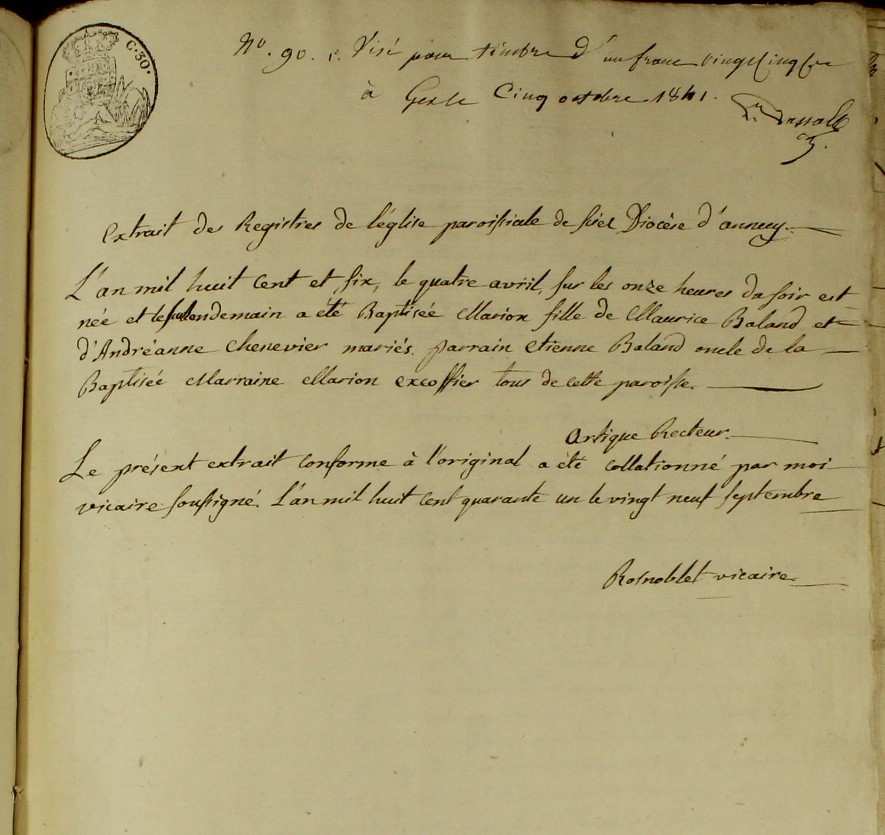 C. 30.
N.º 90. c. Visé pour timbre d'un franc vingt cinq c.
à Gex le Cinq octobre 1841.
Extrait des Registres de l'église paroissiale de Diocèse d'annecy.
L'an mil huit Cent et six, le quatre avril, sur les onze heures du soir est
née et le surlendemain a été Baptisée Marion fille de Maurice Baland et
d'Andréanne Chenevier mariés. parrain etienne Baland oncle de la
Baptisée Marraine Marion excoffier tous de cette paroisse.
Artique Recteur.
Le présent extrait conforme à l'original a été collationné par moi
vicaire soussigné. L'an mil huit cent quarante un le vingt neuf septembre
Rosnoblet vicaire.